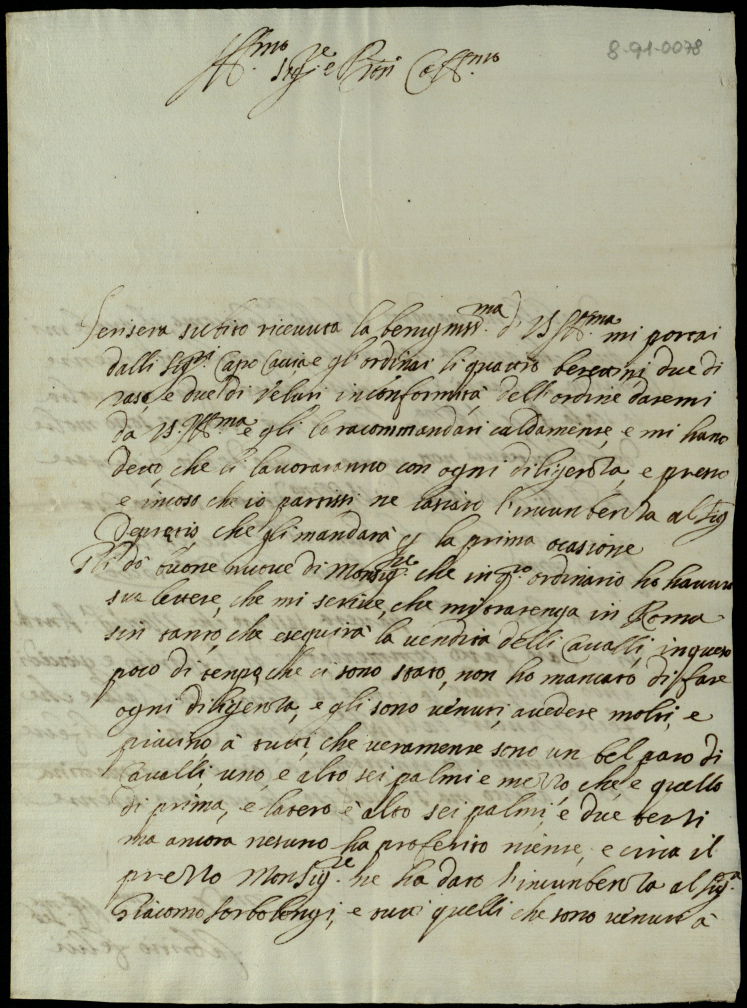 8-91-0078
Ill.mo Sig.re e Pron Col.mo
Ierisera subito riceuuta la benigniss.ma d' VS Ill.ma mi portai
dalli Sig.ri Capo Caccia e gl'ordinai li quatro beretini, due di
raso, e due di Veluti inconformità dell'ordine datemi
da VS. Ill.ma e gli lo racommandai caldamente, e mi hano
detto che li lauoraranno con ogni diligenza, e presto
e incaso che io partissi ne lasciaro l'incunbenza al Sig
che gli mandarà p la prima ocasione
Gli dò buone nuoue di Monsig.re che in q.to ordinario ho hauuto
sua lettere, che mi scriue, che mi tratenga in Roma
sin tanto, che eseguirà la uendita delli Caualli, in questo
poco di tenpo, che ci sono stato, non ho mancato di fare
ogni diligenza, e gli sono uenuti auedere molti, e
piacino à tutti, che ueramente sono un bel paro di
Caualli, uno, e alto sei palmi e mezzo, che, e quello
di prima, e latero è alto sei palmi, e due terzi
ma ancora nesuno ha proferito niente, e circa il
prezzo Monsig.re he ha dato l'incunbenza al Sig.r
Giacomo Sorbolongi, e tutti quelli che sono uenuti à